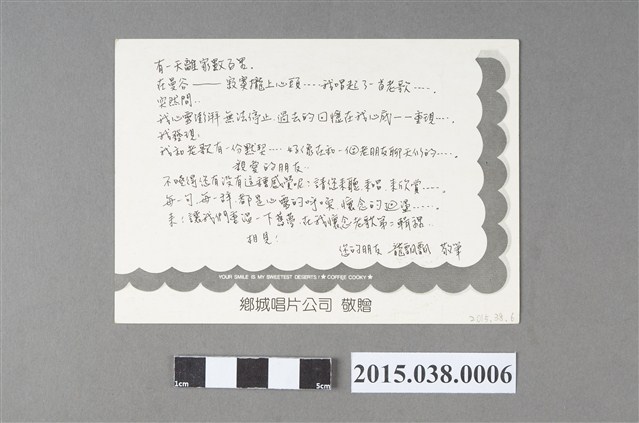 有一天離家數百哩.
在曼谷——寂寞攏上心頭.....我唱起了一首老歌.....
突然間..
我心靈澎湃無法停止.過去的回憶在我心底一一重現.....
我發現!
我和老歌有一份默契.....好像在和一個老朋友聊天似的.....
親愛的朋友..
不曉得您有沒有這種感覺呢?請您來聽.來唱.來欣賞.....
每一句.每一拜.都是心靈的呼喚.懷念的迴盪.....
來!讓我們重溫一下舊夢.在我懷念老歌第二輯裡..
相見!
您的朋友 龍飄飄 敬筆
YOUR SMILE IS MY SWEETEST DESERTS! ★ COFFEE COOKY ★
鄉城唱片公司 敬贈
2015.38.6
1cm 5cm
2015.038.0006